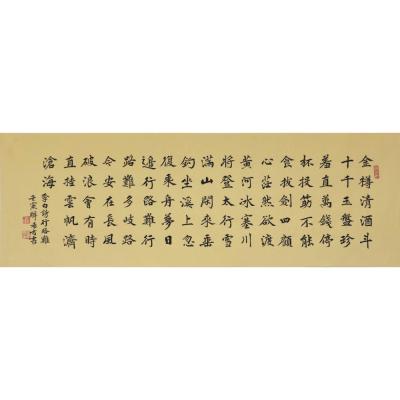 金樽清酒斗
十千玉盤珍
羞直萬錢停
杯投筯不能
食拔劍四顧
心茫然欲渡
黃河冰塞川
將登太行雪
滿山閒來垂
釣坐溪上忽
復乘舟夢日
邊行路難行
路難多岐路
今安在長風
破浪會有時
直挂雲帆濟
滄海
李白詩行路難
壬寅